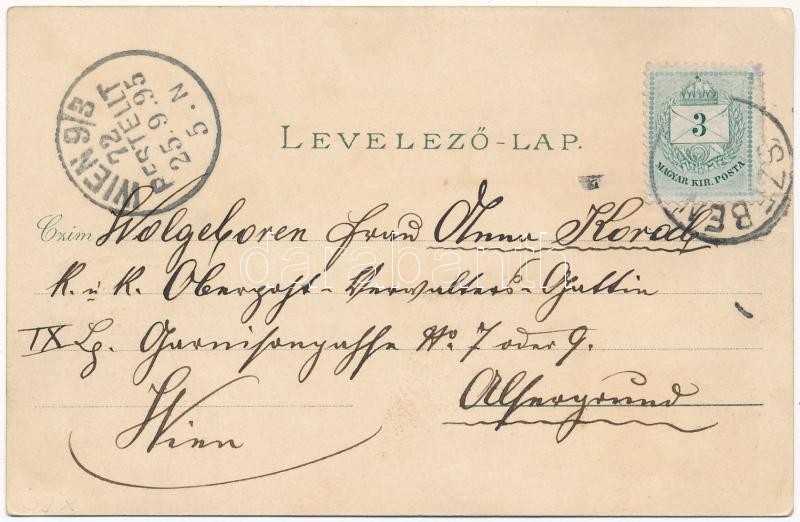 WIEN 9/3
72
BESTELLT
25.9.95
5.N
LEVELEZŐ-LAP.
3
MAGYAR KIR. POSTA
SZEBEN
Czim Wolgeboren Frau Anna
darabanth
k. u. k. Oberpost-Verwalters-Gattin
IX Garnisongasse No. 7 oder 9.
Alsergrund
Wien